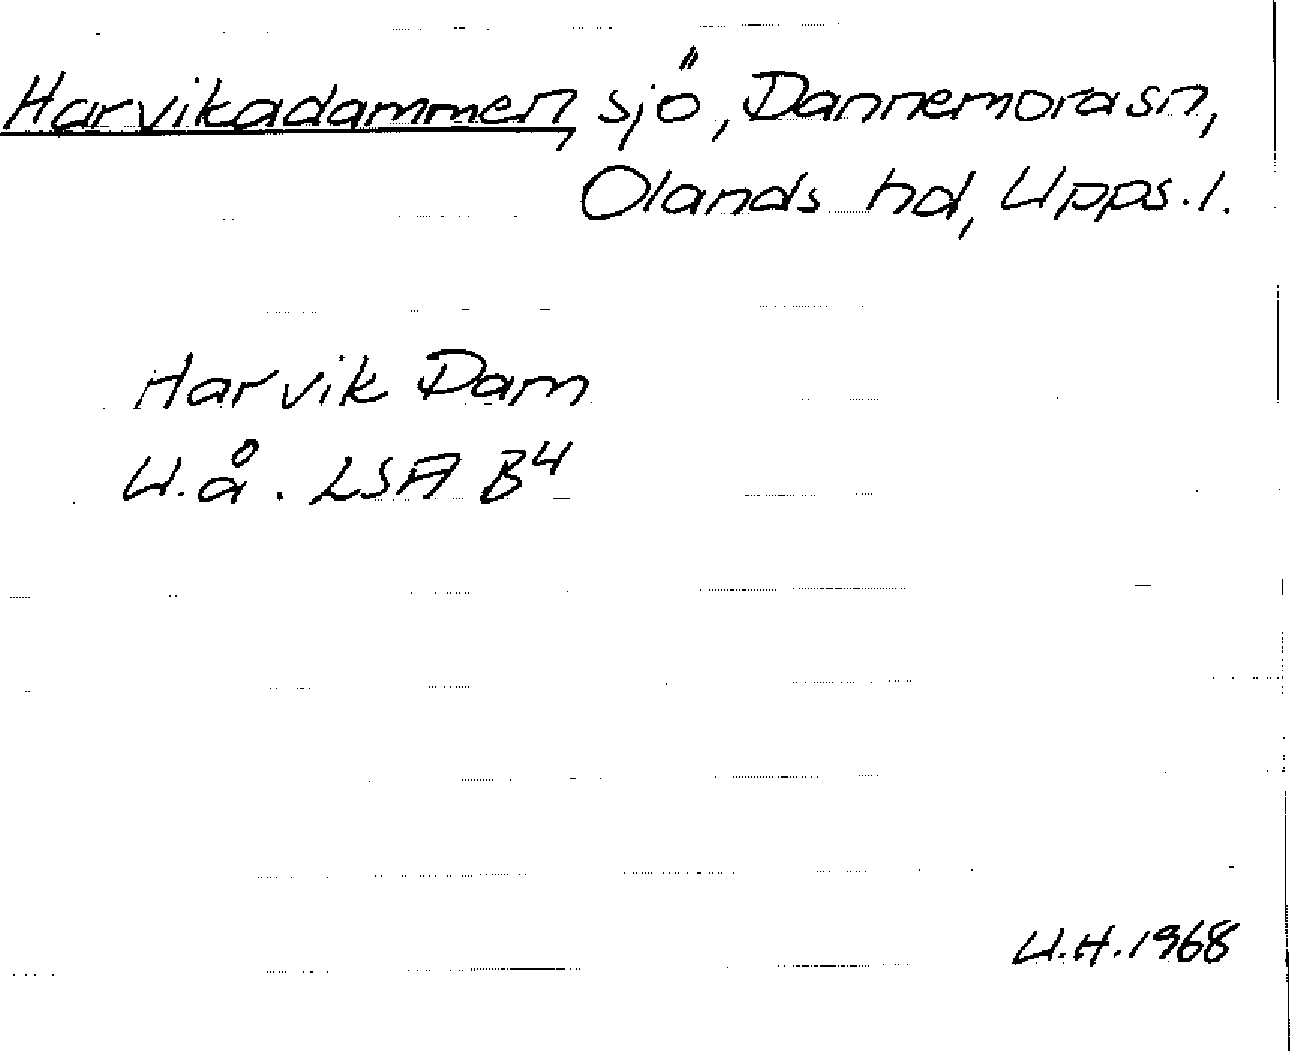 Harvikadammen, sjö, Dannemora sn,
Olands hd, Upps. l.
Harvik Dam
U.å. LSA B4
U.H. 1968